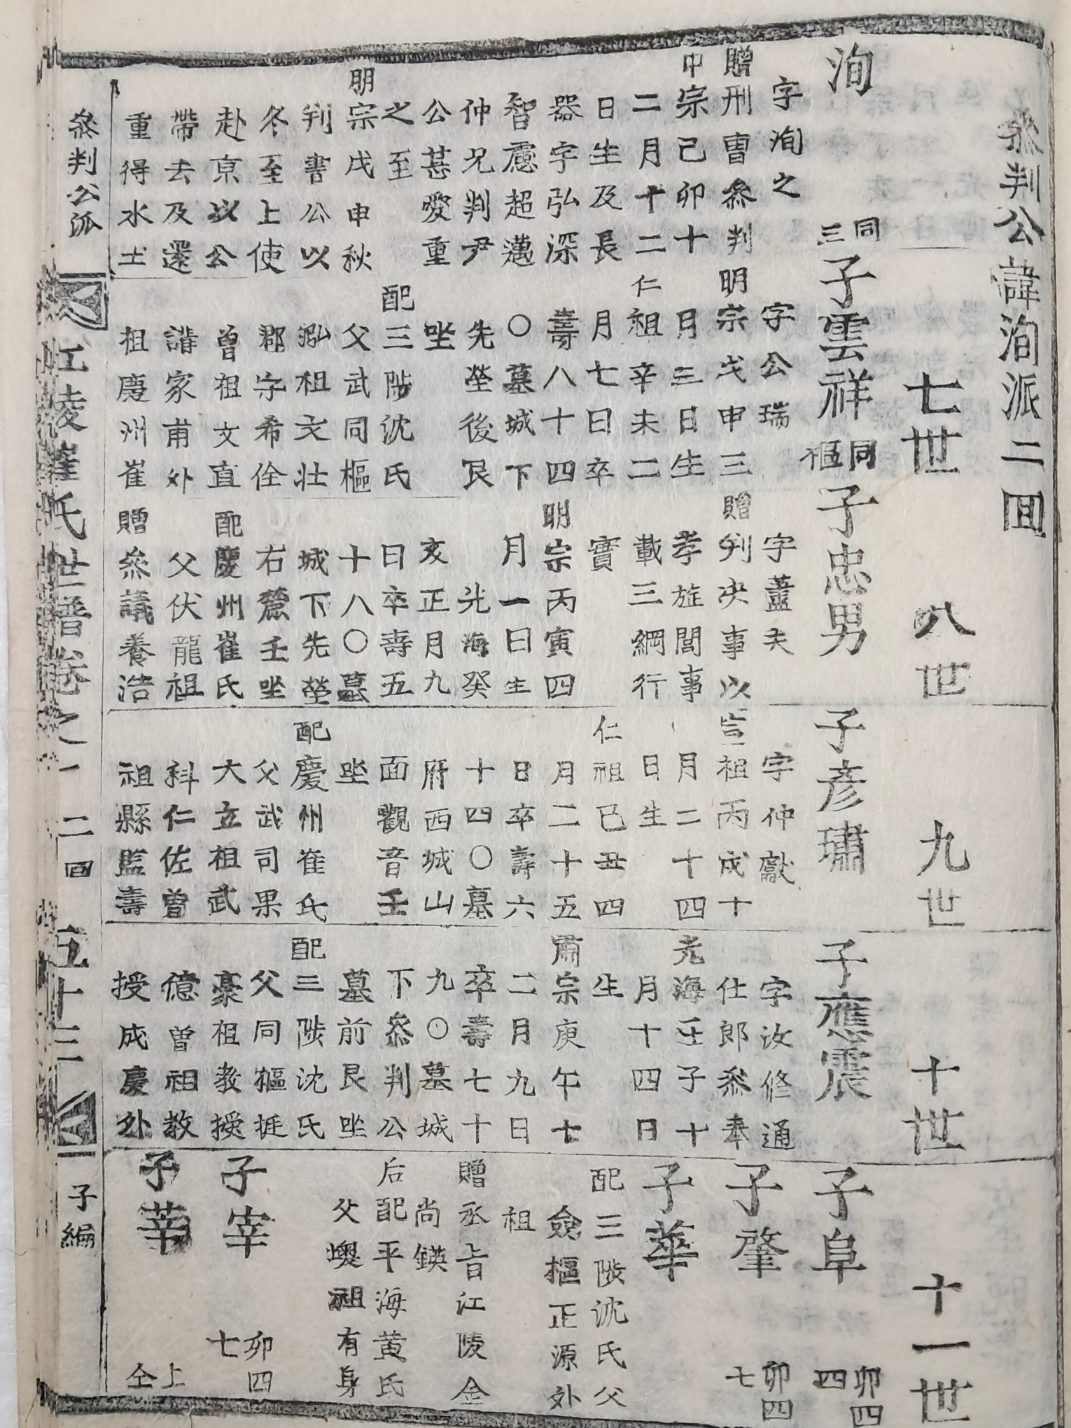 叅判公諱洵派二囘
七世
八世
九世
十世
十一世
洵
同三
字洵之
贈刑曺叅判
中宗己卯十
二月十二
日生及長
器字弘深
智慮超邁
仲兄判尹
公甚愛重
之至
明宗戊申秋
判書公以
冬至上使
赴京以公
帶去及還
重得水土
子雲祥
同樞
字公瑞
明宗戊申三
月三日生
仁祖辛未二
月七日卒
壽八十四
○墓城下
先塋後艮
坐
配三陟沈氏
父武同樞
泓祖文壯
郡守希佺
曾祖文直
諧家甫外
祖慶州崔
子忠男
字蓋夫
贈判决事以
孝旌閭事
載三綱行
實
明宗丙寅四
月一日生
光海癸
亥正月九
日卒壽五
十八○墓
城下先塋
右麓壬坐
配慶州崔氏
父伏龍祖
贈叅議養浩
子彥璛
字仲獻
宣祖丙戌十
月二十四
日生
仁祖己丑四
月二十五
日卒壽六
十四○墓
府西城山
面觀音壬
坐
配慶州崔氏
父武司果
大立祖武
科仁佐曾
祖縣監壽
子應震
字汝修通
仕郎叅奉
光海壬子十
月十四日
生
肅宗庚午七
二月九日
卒壽七十
九○墓城
下叅判公
墓前艮坐
配三陟沈氏
父同樞挺
豪祖敎授
億曾祖敎
授成慶外
子阜
卯四四
子肇
卯四七
子華
配三陟沈氏父
僉樞正源外
祖
贈丞旨江陵金
尚鍈
后配平海黃氏
父㙖祖有身
子宰
卯四七
子莘
上仝
叅判公派
江陵崔氏世譜卷之一
二囘
五十三
子編